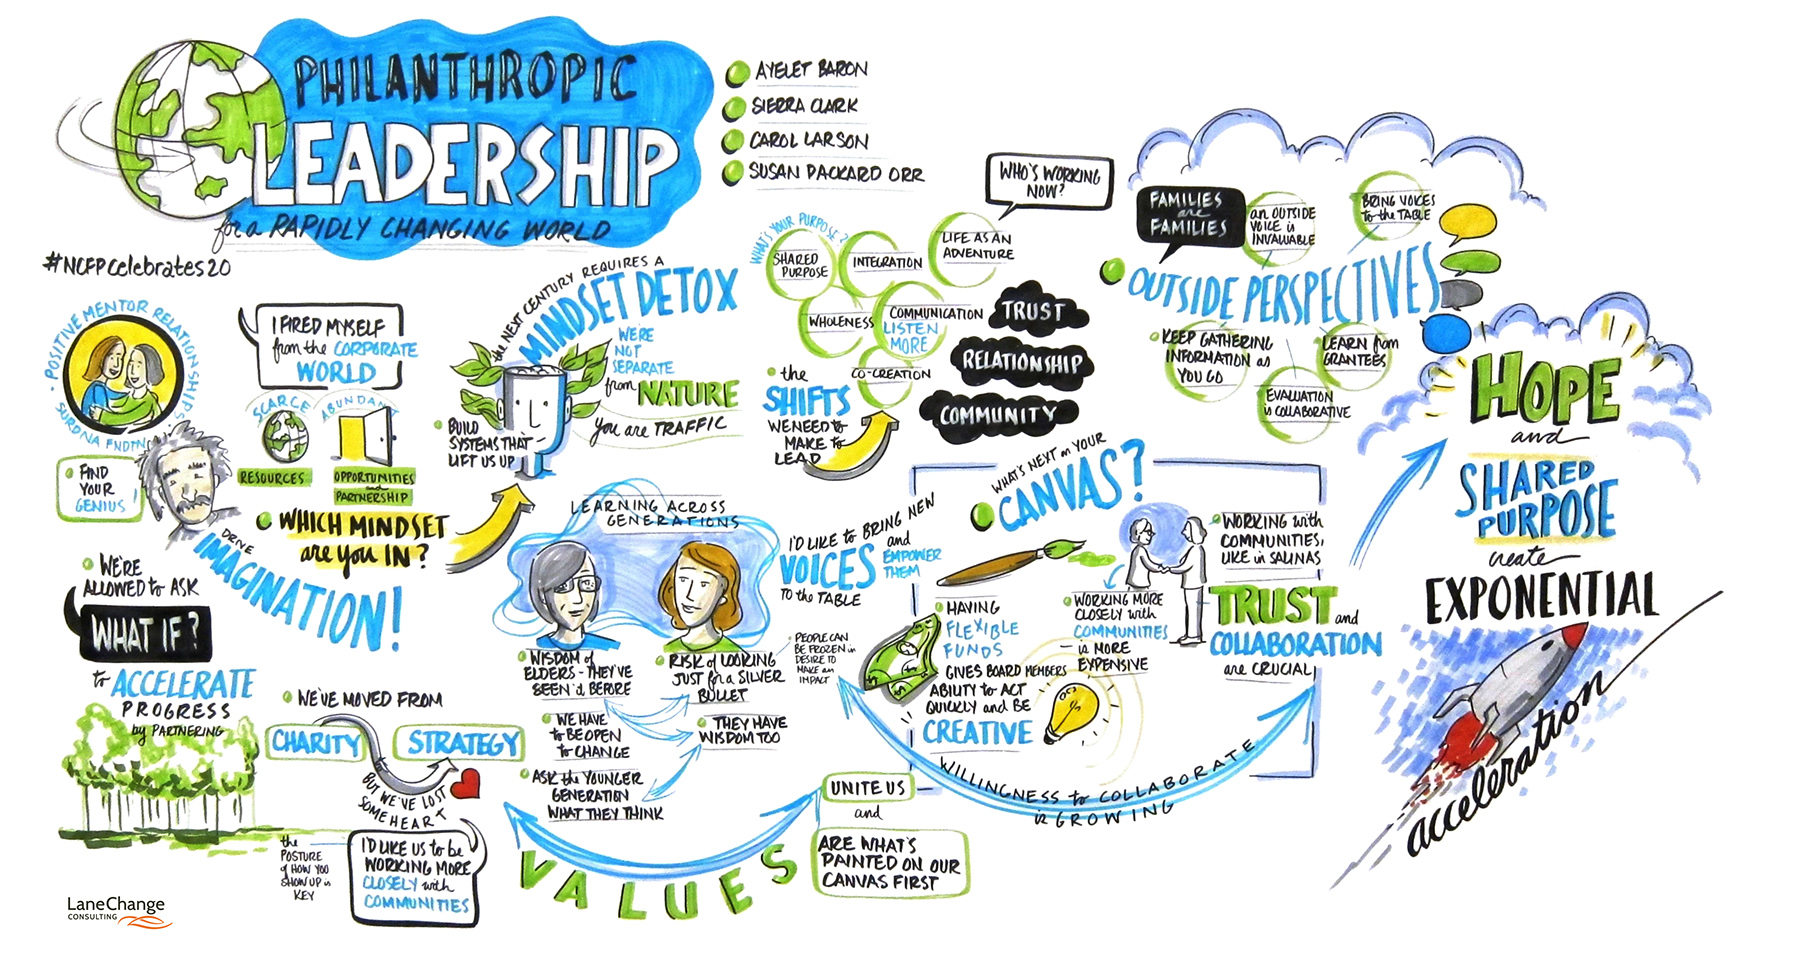 PHILANTHROPIC
LEADERSHIP
for a RAPIDLY CHANGING WORLD
#NCFPcelebrates20
AYELET BARON
SIERRA CLARK
CAROL LARSON
SUSAN PACKARD ORR
POSITIVE MENTOR RELATIONSHIPS
SURDNA FNDTN
I FIRED MYSELF
from the CORPORATE
WORLD
SCARCE
RESOURCES
ABUNDANT
OPPORTUNITIES
and
PARTNERSHIP
FIND
YOUR
GENIUS!
DRIVE
IMAGINATION!
WHICH MINDSET
are you IN?
WE'RE
ALLOWED to ASK
WHAT IF?
to ACCELERATE
PROGRESS
by PARTNERING
WE'VE MOVED FROM
CHARITY
STRATEGY
BUT WE'VE LOST
SOME HEART
the
POSTURE
of HOW YOU
SHOW UP is
KEY
I'D LIKE US to be
WORKING MORE
CLOSELY with
COMMUNITIES
LaneChange
CONSULTING
the NEXT CENTURY REQUIRES A
MINDSET DETOX
WE'RE
NOT
SEPARATE
from NATURE
you are TRAFFIC
BUILD
SYSTEMS THAT
LIFT US UP
LEARNING ACROSS
GENERATIONS
WISDOM of
ELDERS - THEY'VE
SEEN it BEFORE
RISK of LOOKING
JUST for a SILVER
BULLET
PEOPLE CAN
BE FROZEN in
DESIRE TO
MAKE an
IMPACT
WE HAVE
to BE OPEN
to CHANGE
THEY HAVE
WISDOM TOO
ASK the YOUNGER
GENERATION
WHAT THEY THINK
VALUES
UNITE US
and
ARE WHAT'S
PAINTED ON OUR
CANVAS FIRST
WHAT'S YOUR PURPOSE?
SHARED
PURPOSE
INTEGRATION
LIFE AS AN
ADVENTURE
WHO'S WORKING
NOW?
WHOLENESS
COMMUNICATION
LISTEN
MORE
CO-CREATION
the
SHIFTS
WE NEED to
MAKE to
LEAD
TRUST
RELATIONSHIP
COMMUNITY
I'D LIKE to BRING NEW
VOICES
and
EMPOWER
THEM
TO the TABLE
WHAT'S NEXT on YOUR
CANVAS?
HAVING
FLEXIBLE
FUNDS
GIVES BOARD MEMBERS
ABILITY to ACT
QUICKLY and BE
CREATIVE
WORKING MORE
CLOSELY with
COMMUNITIES
is MORE
EXPENSIVE
WORKING with
COMMUNITIES,
LIKE in SALINAS
TRUST and
COLLABORATION
are CRUCIAL
WILLINGNESS to COLLABORATE
is GROWING
FAMILIES
are
FAMILIES
an OUTSIDE
VOICE is
INVALUABLE
BRING VOICES
to the TABLE
OUTSIDE PERSPECTIVES
KEEP GATHERING
INFORMATION as
YOU GO
LEARN from
GRANTEES
EVALUATION
is COLLABORATIVE
HOPE
and
SHARED
PURPOSE
create
EXPONENTIAL
acceleration